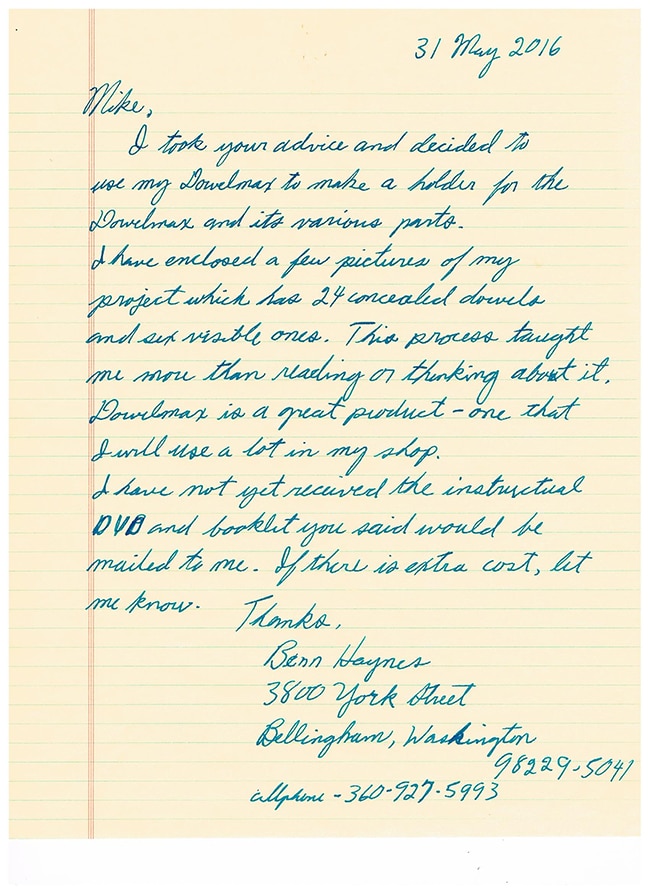 31 May 2016
Mike,
I took your advice and decided to
use my Dowelmax to make a holder for the
Dowelmax and its various parts.
I have enclosed a few pictures of my
project which has 24 concealed dowels
and six visible ones. This process taught
me more than reading or thinking about it.
Dowelmax is a great product - one that
I will use a lot in my shop.
I have not yet received the instructual
DVD and booklet you said would be
mailed to me. If there is extra cost, let
me know.
Thanks,
Benn Haynes
3800 York Street
Bellingham, Washington
98229-5041
cellphone - 360-927-5993